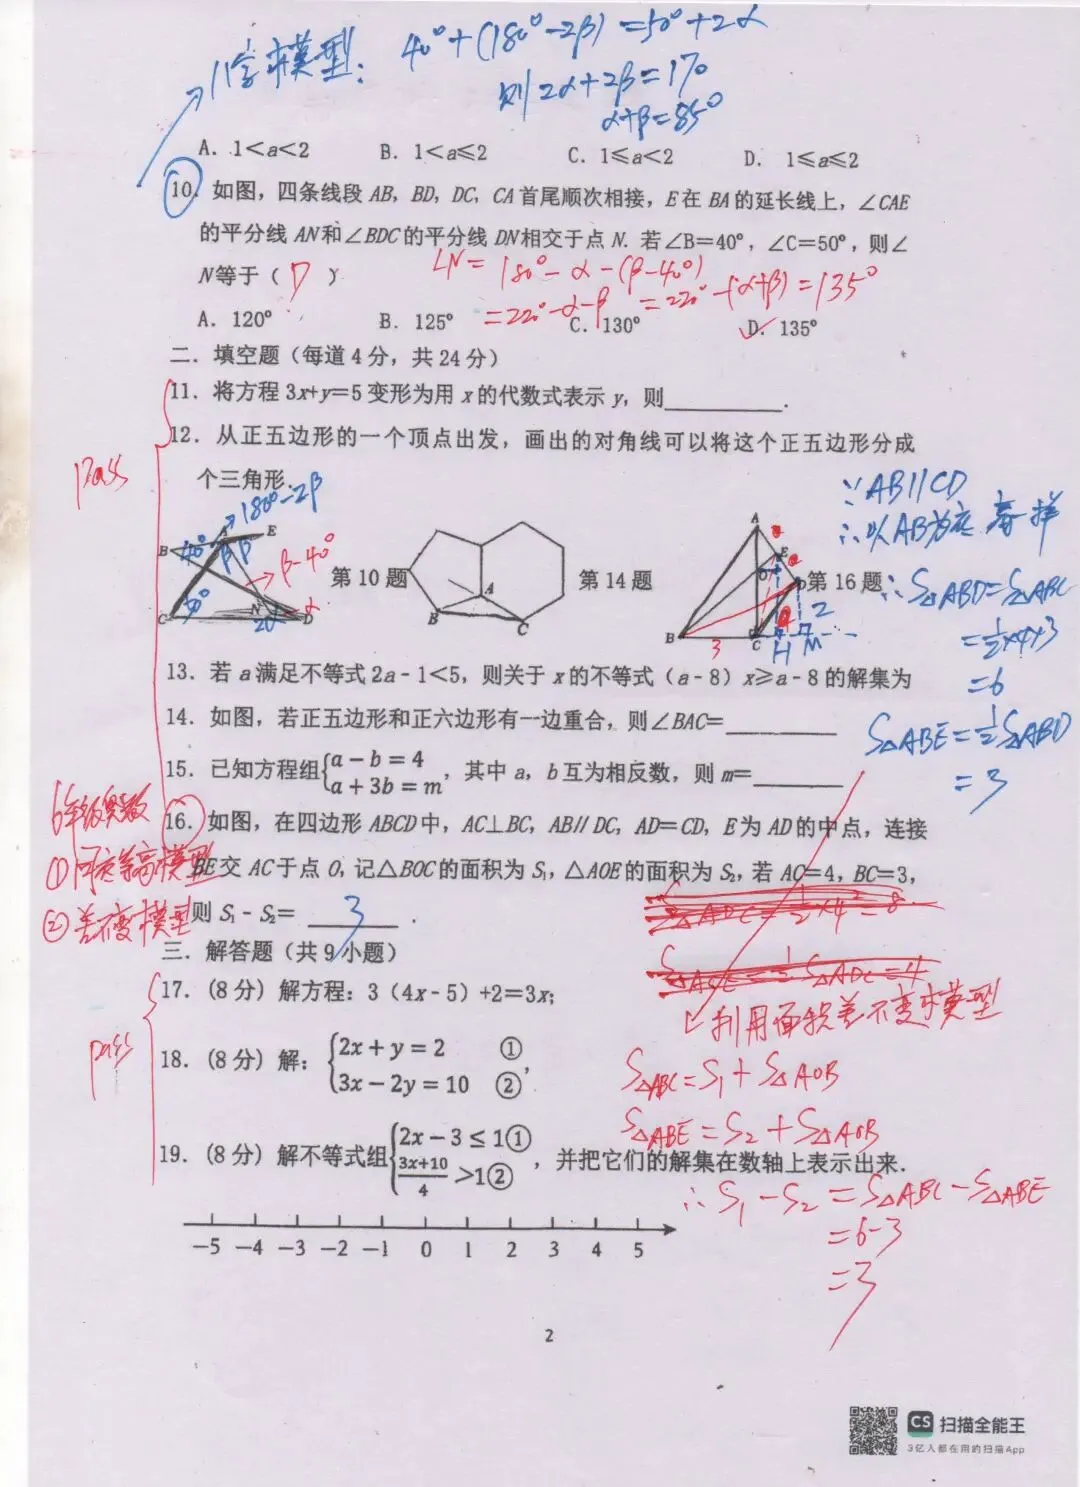 11字模型: 40°+(180°-2β)=50°+2α
则2α+2β=170
α+β=85°
A. 1<a<2 B. 1<a≤2 C. 1≤a<2 D. 1≤a≤2
10. 如图，四条线段 AB，BD，DC，CA 首尾顺次相接，E 在 BA 的延长线上，∠CAE
的平分线 AN 和∠BDC 的平分线 DN 相交于点 N. 若∠B=40°，∠C=50°，则∠
N等于（ D ）
∠N= 180°-α-(β-40°)
=220°-α-β =220°-(α+β)=135°
A. 120° B. 125° C. 130° D. 135°
二. 填空题（每道 4 分，共 24 分）
11. 将方程 3x+y=5 变形为用 x 的代数式表示 y，则________.
12. 从正五边形的一个顶点出发，画出的对角线可以将这个正五边形分成
个三角形.
pass
180°-2β
A E
B 40° β β
β-40°
C 50° N 2α D α
第 10 题
A
B C
第 14 题
A
E
O D
B C
3 4 2
H M
第 16 题
∵AB//CD
∴以AB为底 高一样
∴S△ABD=S△ABC
=½×4×3
=6
S△ABE=½S△ABD
=3
13. 若 a 满足不等式 2a-1<5，则关于 x 的不等式（a-8）x≥a-8 的解集为
14. 如图，若正五边形和正六边形有一边重合，则∠BAC=________
15. 已知方程组{a-b=4
a+3b=m，其中 a，b 互为相反数，则 m=________
6年级奥数
①同底等高模型
②差不变模型
16. 如图，在四边形 ABCD 中，AC⊥BC，AB∥DC，AD=CD，E 为 AD 的中点，连接
BE 交 AC 于点 O，记△BOC 的面积为 S₁，△AOE 的面积为 S₂，若 AC=4，BC=3，
则 S₁-S₂= 3 .
S△ADC=½×4²=8
S△ACE=½S△ADC=4
利用面积差不变模型
S△ABC=S₁+S△AOB
S△ABE=S₂+S△AOB
∴S₁-S₂=S△ABC-S△ABE
=6-3
=3
三. 解答题（共 9 小题）
pass
17.（8 分）解方程：3（4x-5）+2=3x;
18.（8 分）解：{2x+y=2 ①
3x-2y=10 ②，
19.（8 分）解不等式组{2x-3≤1①
(3x+10)/4>1②，并把它们的解集在数轴上表示出来.
-5 -4 -3 -2 -1 0 1 2 3 4 5
2
CS 扫描全能王
3亿人都在用的扫描App